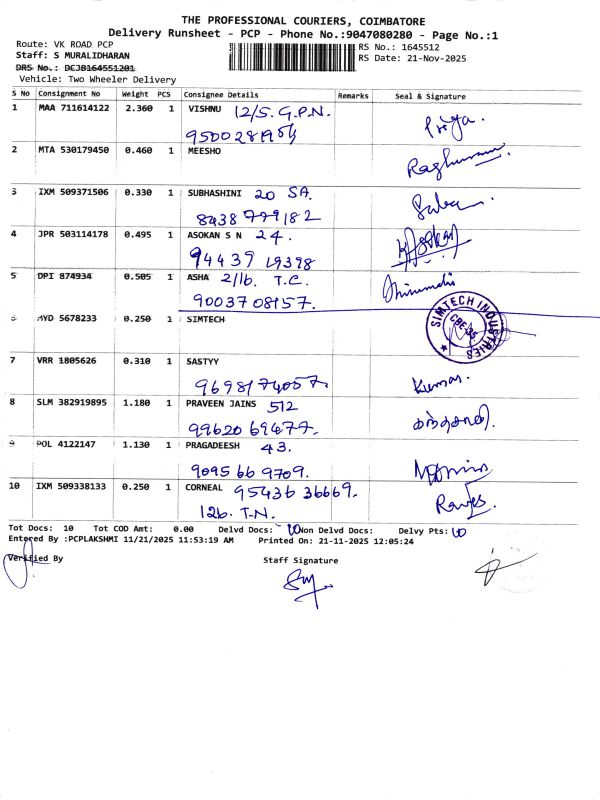 THE PROFESSIONAL COURIERS, COIMBATORE
Delivery Runsheet - PCP - Phone No.:9047080280 - Page No.:1
Route: VK ROAD PCP
RS No.: 1645512
Staff: S MURALIDHARAN
RS Date: 21-Nov-2025
DRS No.: DCJB164551201
Vehicle: Two Wheeler Delivery
S No Consignment No Weight PCS Consignee Details Remarks Seal & Signature
1 MAA 711614122 2.360 1 VISHNU 12/5. G.P.N. Priya.
9500281954
2 MTA 530179450 0.460 1 MEESHO Raghuram
3 IXM 509371506 0.330 1 SUBHASHINI 20 SA.
8438779182
4 JPR 503114178 0.495 1 ASOKAN S N 24.
94439 19398
5 DPI 874934 0.505 1 ASHA 2/16. T.C.
9003708157.
6 AYD 5678233 0.250 1 SIMTECH SIMTECH INDUSTRIES CBE-35
7 VRR 1805626 0.310 1 SASTYY
9698174057. Kumar.
8 SLM 382919895 1.180 1 PRAVEEN JAINS 512
99620 69477.
9 POL 4122147 1.130 1 PRAGADEESH 43.
9095 66 9709.
10 IXM 509338133 0.250 1 CORNEAL 95436 36669.
126. T.N.
Tot Docs: 10 Tot COD Amt: 0.00 Delvd Docs: 10 Non Delvd Docs: Delvy Pts: 10
Entered By :PCPLAKSHMI 11/21/2025 11:53:19 AM Printed On: 21-11-2025 12:05:24
Verified By
Staff Signature